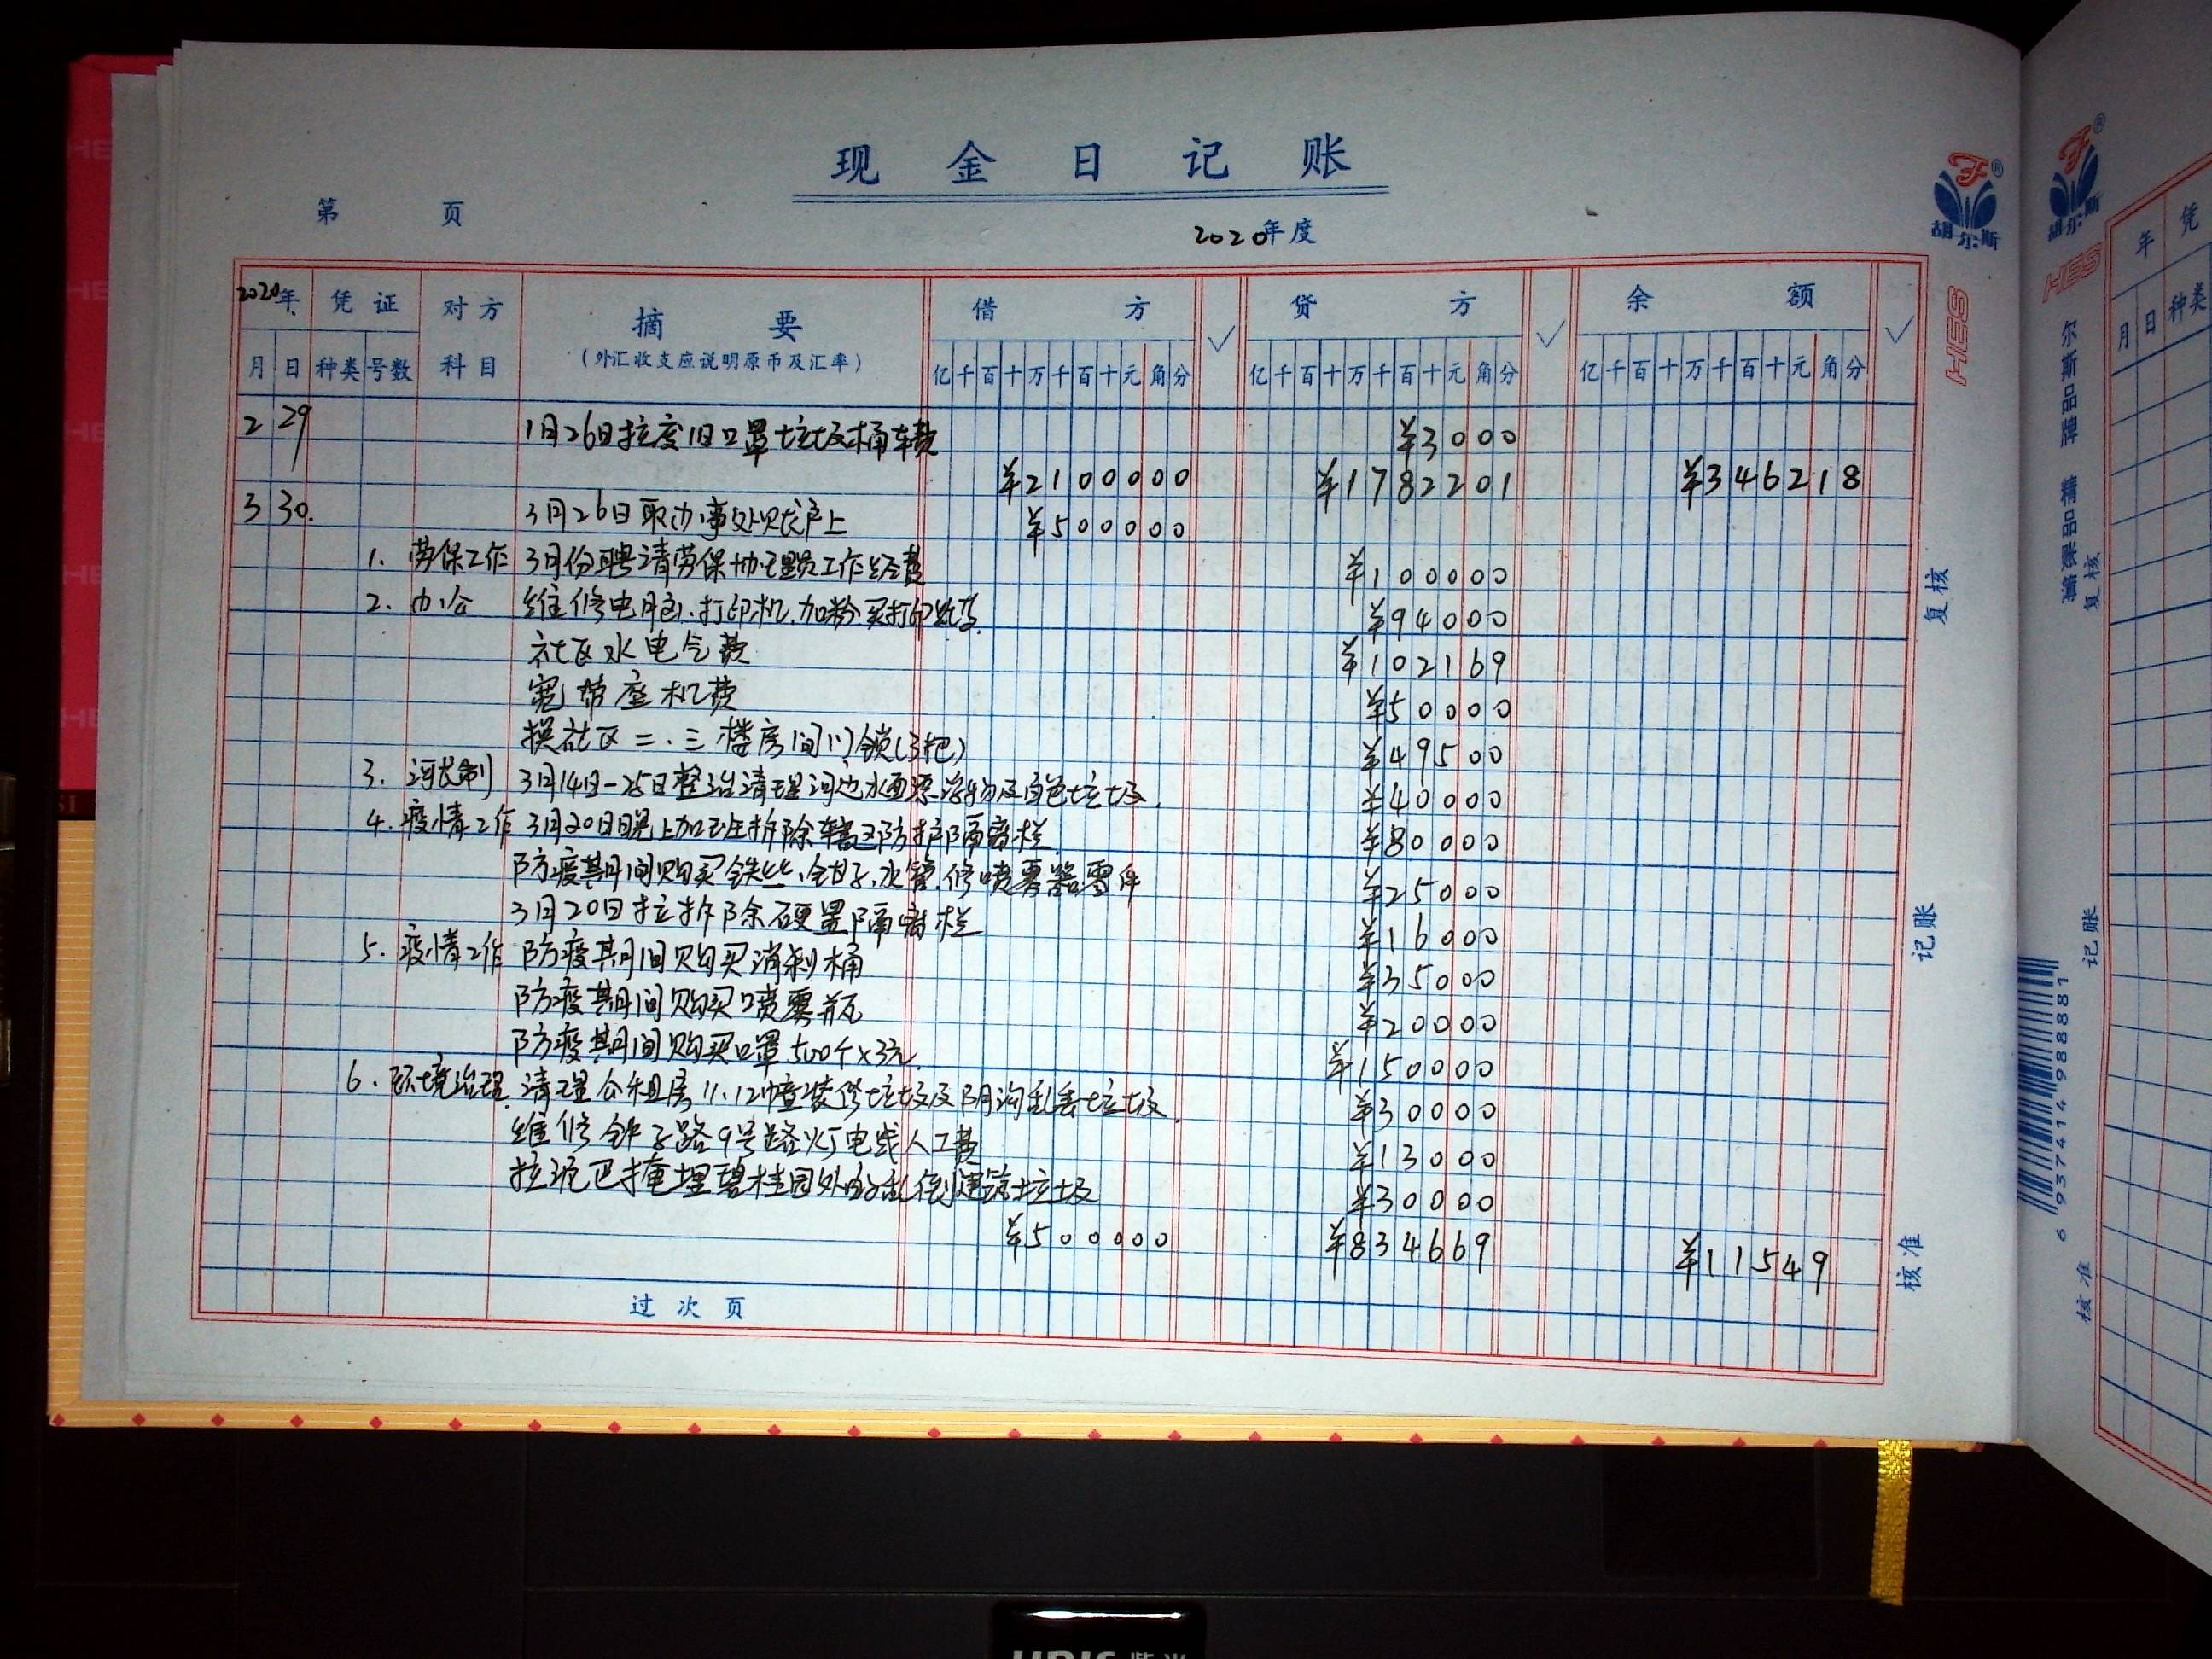 现 金 日 记 账
第 页
2020年度
2020年 凭 证 对 方 摘 要 借 方 ✓ 贷 方 ✓ 余 额 ✓
月 日 种类 号数 科 目 (外汇收支应说明原币及汇率) 亿千百十万千百十元角分 亿千百十万千百十元角分 亿千百十万千百十元角分
2 29 1月26日拉废旧口罩垃圾桶车费 ¥3000
¥2100000 ¥1782201 ¥346218
3 30. 3月26日取办事处账户上 ¥500000
1. 劳保工作 3月份聘请劳保协理员工作经费 ¥100000
2. 办公 维修电脑.打印机.加粉.买打印纸等. ¥94000
社区水电气费 ¥102169
宽带座机费 ¥50000
换社区二.三楼房间门锁(3把) ¥49500
3. 河长制 3月14日-25日整治清理河边水面漂浮物及白色垃圾. ¥40000
4. 疫情工作 3月20日晚上加班拆除辖区防护隔离栏 ¥80000
防疫期间购买铁丝、钳子.水管.修喷雾器零件 ¥25000
3月20日拉拆除硬置隔离栏 ¥16000
5. 疫情工作 防疫期间购买消刹桶 ¥35000
防疫期间购买喷雾瓶 ¥20000
防疫期间购买口罩500个×3元. ¥150000
6. 环境治理. 清理公租房11.12幢装修垃圾及阴沟乱丢垃圾. ¥30000
维修钟子路9号路灯电线人工费 ¥13000
拉泥巴掩埋碧桂园外的乱倒建筑垃圾 ¥30000
¥500000 ¥834669 ¥11549
过 次 页
胡尔斯
HES
复核
记账
核准
胡尔斯
HES
尔斯品牌 精品账簿
复核
记账
核准
6 937414 988881
年 凭
月 日 种类
UNIS 紫光